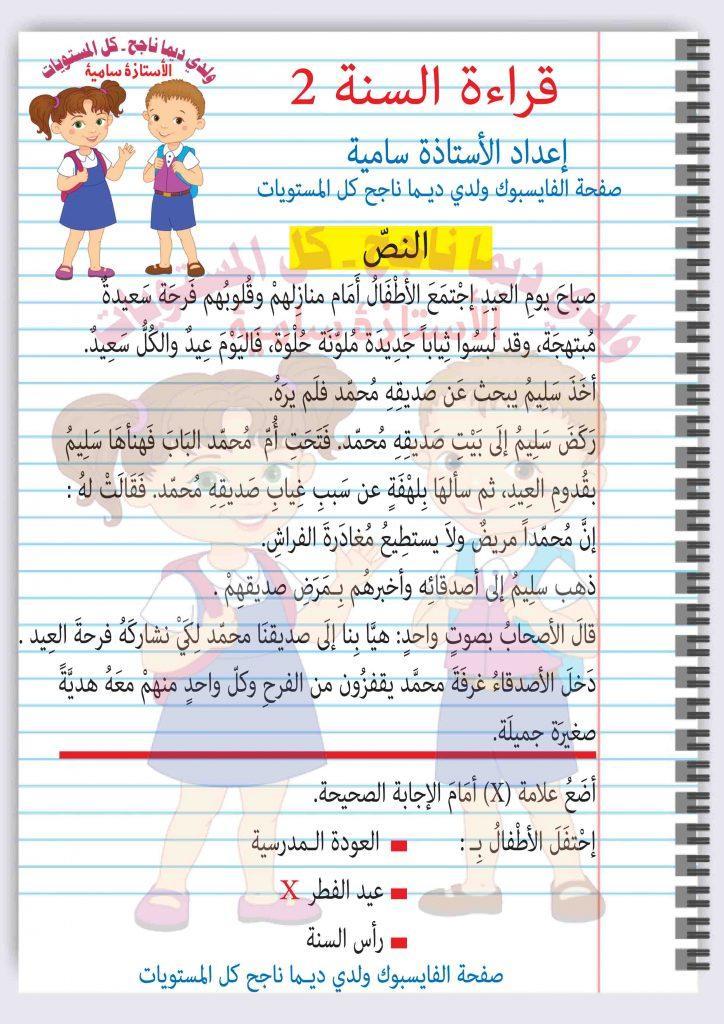 ولدي ديما ناجح - كل المستويات
الأستاذة سامية
قراءة السنة 2
إعداد الأستاذة سامية
صفحة الفايسبوك ولدي ديـما ناجح كل المستويات
النصّ
صباحَ يومِ العيدِ إجْتمَعَ الأطْفَالُ أمَام منازلهمْ وقُلوبُهم فَرحَة سَعيدةٌ
مُبتهجَة، وقد لَبسُوا ثِياباً جَدِيدَة مُلوّنَة حُلْوَة، فَاليَوْمَ عِيدٌ والكُلُّ سَعِيدٌ.
أخَذَ سَلِيمُ يبحث عَن صَديقِهِ مُحمّد فلَم يرَهُ.
رَكَضَ سَلِيمُ إلَى بَيْتِ صَديقِهِ مُحمّد. فَتَحَت أُمَّ مُحمّد البَابَ فَهنأهَا سَلِيمُ
بقُدومِ العِيدِ، ثم سألهَا بِلهْفَةٍ عن سَببِ غِيابِ صَديقِهِ مُحمّد. فَقَالَتْ لهُ :
إنَّ مُحمّداً مريضٌ ولاَ يستطِيعُ مُغادَرةَ الفراشِ.
ذهب سلِيمُ إلى أصدقائِه وأخبرهُم بِـمَرَضِ صديقهِمْ .
قالَ الأصحابُ بصوتٍ واحدٍ: هيَّا بِنا إلَى صديقنَا محمّد لِكَيْ نشاركَهُ فرحةَ العِيد .
دَخلَ الأصدقاءُ غرفَةَ محمَّد يقفزُون من الفرحِ وكلّ واحدٍ منهمْ معَهُ هديَّةً
صغيرَة جميلَة.
أضَعُ علامة (X) أمَامَ الإجابة الصحيحة.
إحْتفَلَ الأطْفالُ بِـ : العودة الـمدرسية
عيد الفطر X
رأس السنة
صفحة الفايسبوك ولدي ديـما ناجح كل المستويات